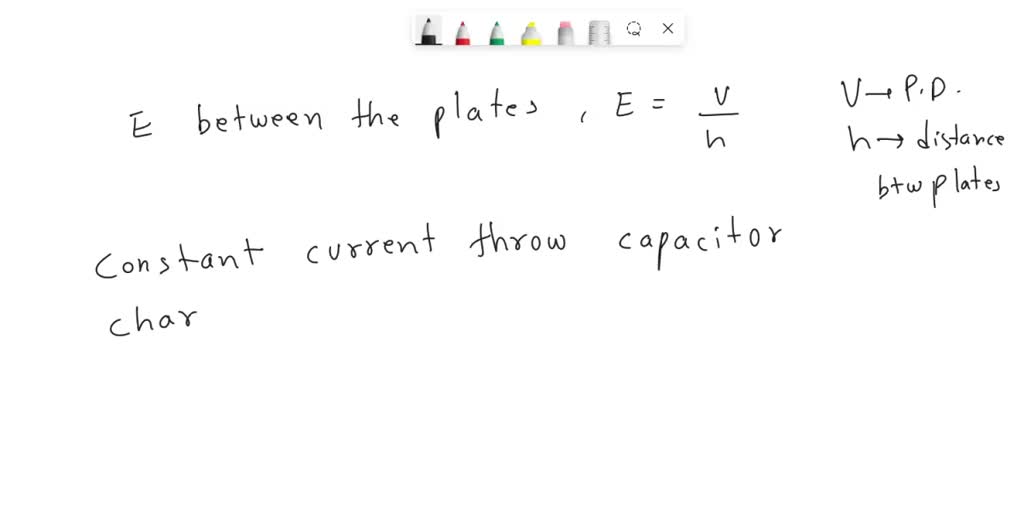 E between the plates, E = V/h
V → P.D.
h → distance
btw plates
Constant current throw capacitor
char